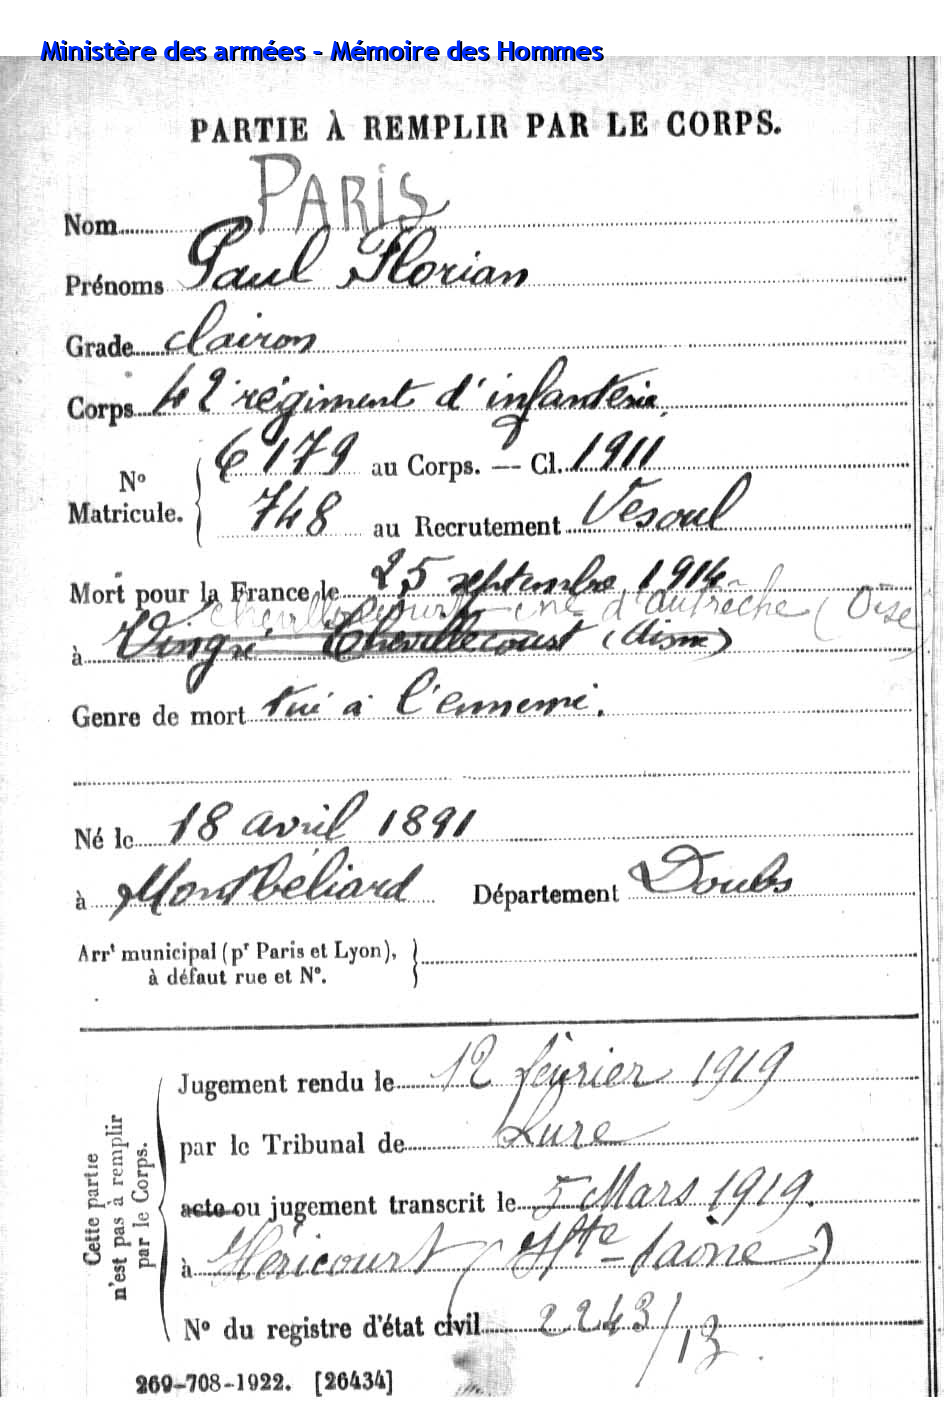 Ministère des armées - Mémoire des Hommes
PARTIE À REMPLIR PAR LE CORPS.
Nom PARIS
Prénoms Paul Florian
Grade clairon
Corps 42e régiment d'infanterie
No Matricule. { 6179 au Corps. — Cl. 1911
748 au Recrutement Vesoul
Mort pour la France le 25 septembre 1914
Chevillecourt cne d'Autrêche (Oise)
à Vingré Chevillecourt (Aisne)
Genre de mort tué à l'ennemi.
Né le 18 avril 1891
à Montbéliard Département Doubs
Arrt municipal (pr Paris et Lyon),
à défaut rue et No.
Cette partie n'est pas à remplir par le Corps.
Jugement rendu le 12 février 1919
par le Tribunal de Lure
acte ou jugement transcrit le 5 Mars 1919.
à Héricourt (Hte-Saône)
No du registre d'état civil 2243/13
269-708-1922. [26434]